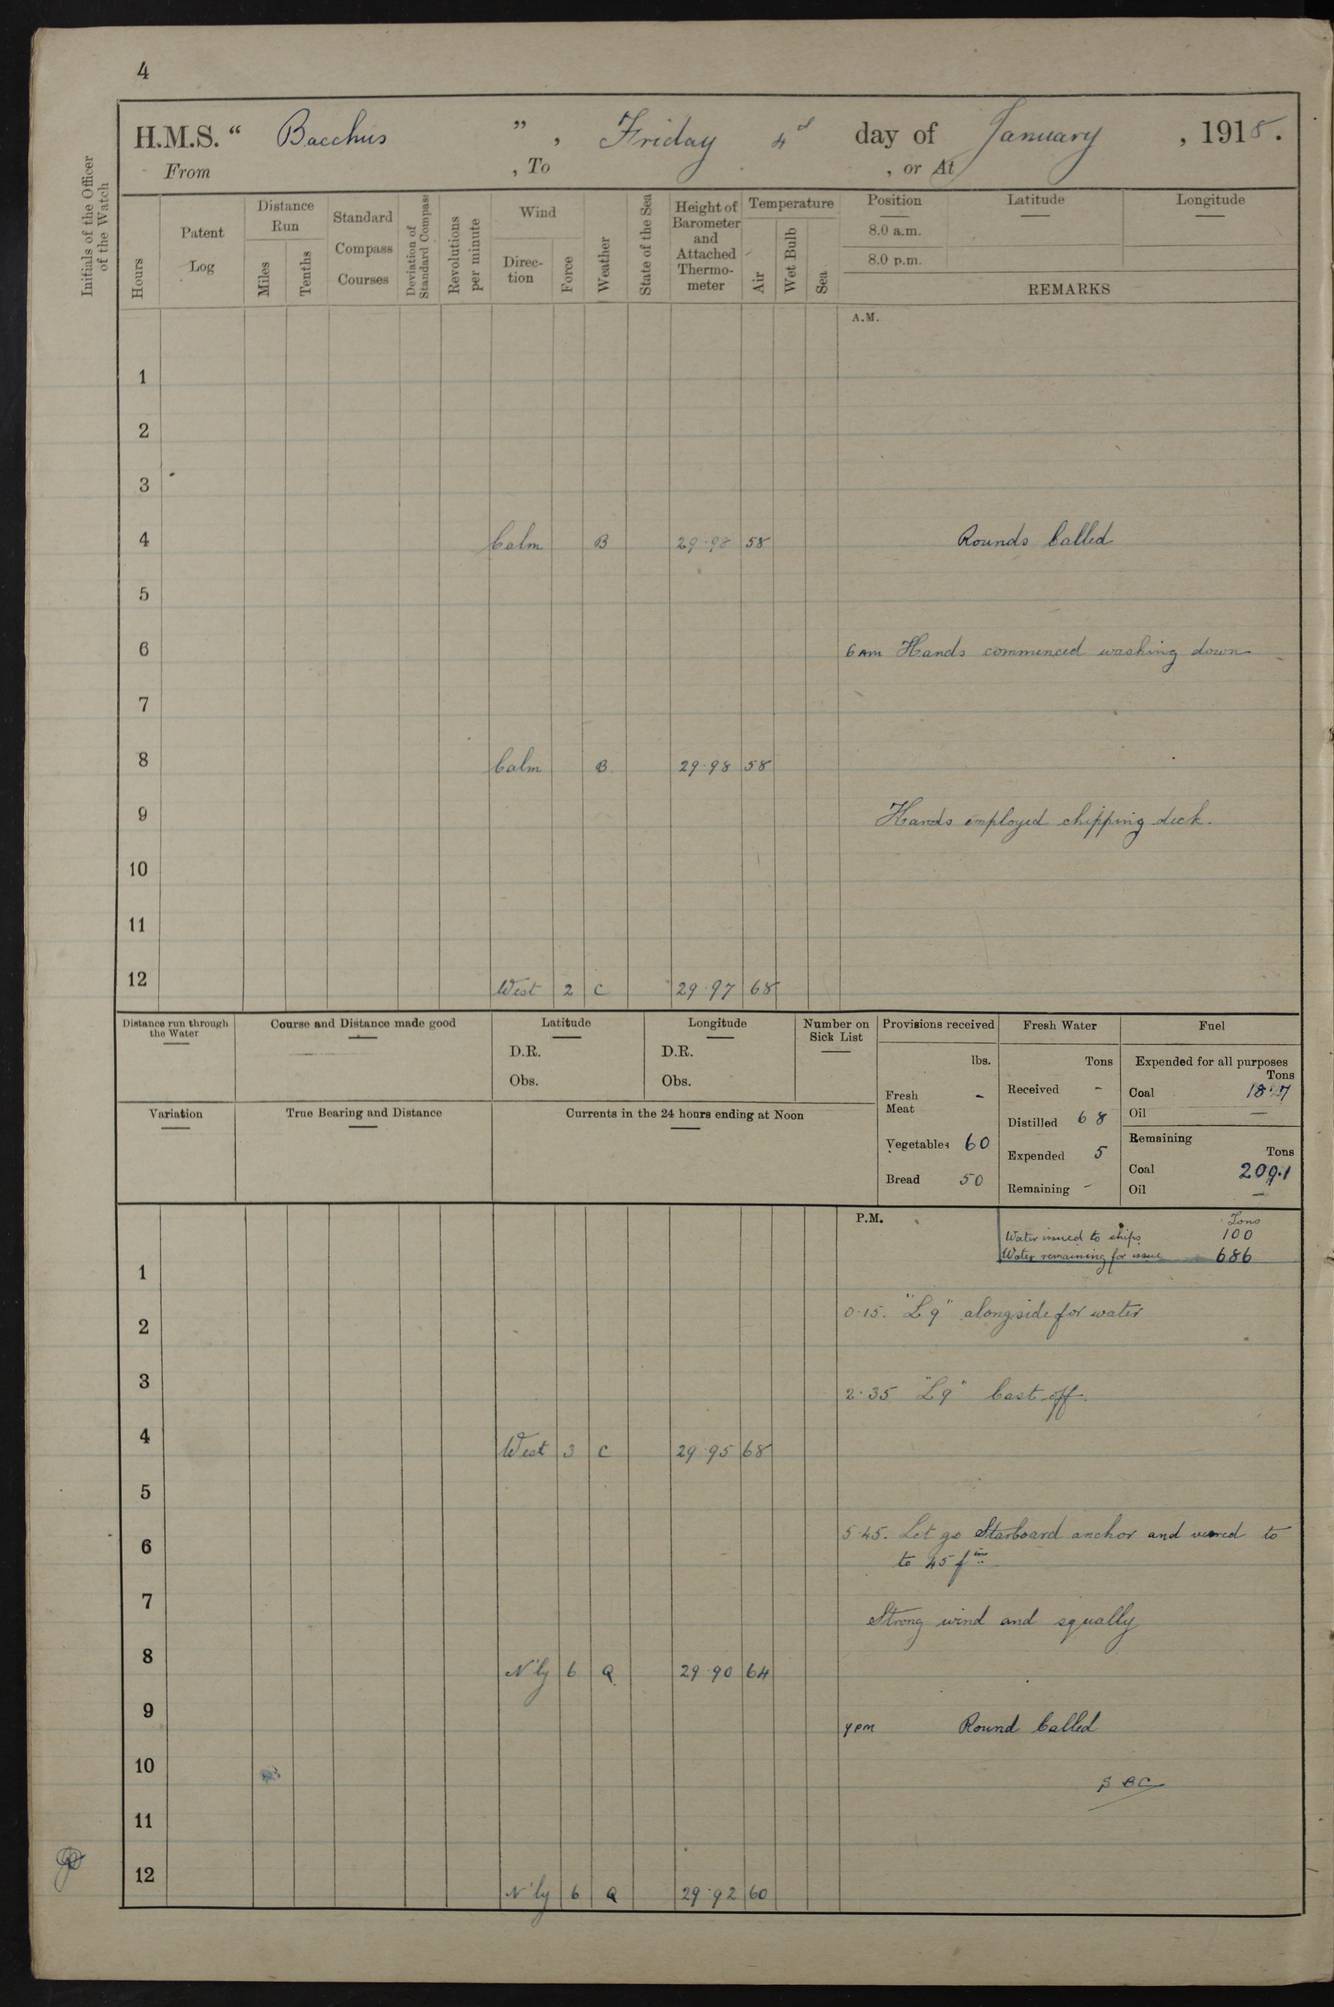 4
H.M.S. “ Bacchus ” , Friday 4 day of January , 1918.
From , To , or At
Initials of the Officer
of the Watch
Hours
Patent
Log
Distance
Run
Miles
Tenths
Standard
Compass
Courses
Deviation of
Standard Compass
Revolutions
per minute
Wind
Direc-
tion
Force
Weather
State of the Sea
Height of
Barometer
and
Attached
Thermo-
meter
Temperature
Air
Wet Bulb
Sea
Position
8.0 a.m.
8.0 p.m.
Latitude
Longitude
REMARKS
A.M.
1
2
3
4 Calm B 29.98 58 Rounds Called
5
6 6 AM Hands commenced washing down
7
8 Calm B 29.98 58
9 Hands employed chipping deck.
10
11
12 West 2 C 29.97 68
Distance run through
the Water
Course and Distance made good
Latitude
D.R.
Obs.
Longitude
D.R.
Obs.
Number on
Sick List
Provisions received
lbs.
Fresh
Meat -
Vegetables 60
Bread 50
Fresh Water
Tons
Received -
Distilled 68
Expended 5
Remaining -
Fuel
Expended for all purposes
Tons
Coal
Oil —
Remaining
Tons
Coal 209.1
Oil —
Variation
True Bearing and Distance
Currents in the 24 hours ending at Noon
P.M.
Tons
Water issued to ships 100
Water remaining for issue 686
1
0.15. "L9" alongside for water
2
3 2.35 "L9" Cast off.
4 West 3 C 29.95 68
5
5.45. Let go Starboard anchor and veered to
6
to 45 fms
7 Strong wind and squally
8 N'ly 6 Q 29.90 64
9 9 PM Round Called
10
11
12 N'ly 6 Q 29.92 60